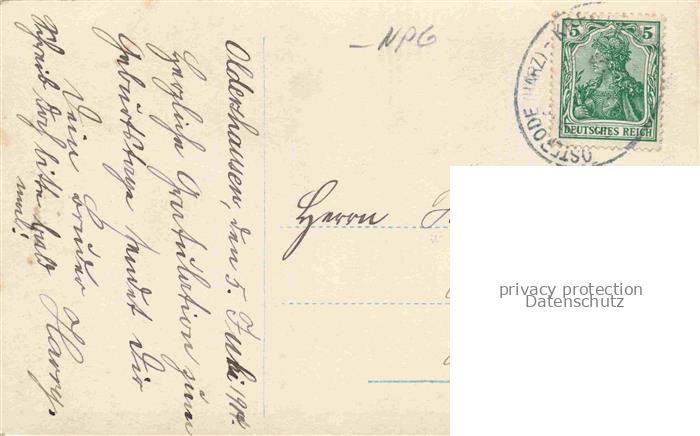 Oldershausen, den 5. Juli 1911.
Herzliche Gratulation zum
Geburtstage sendet Dir
Dein Bruder Harry.
Schreib doch bitte bald
mal!
- NPG
Herrn
5 5
DEUTSCHES REICH
OSTERODE (HARZ)
privacy protection
Datenschutz